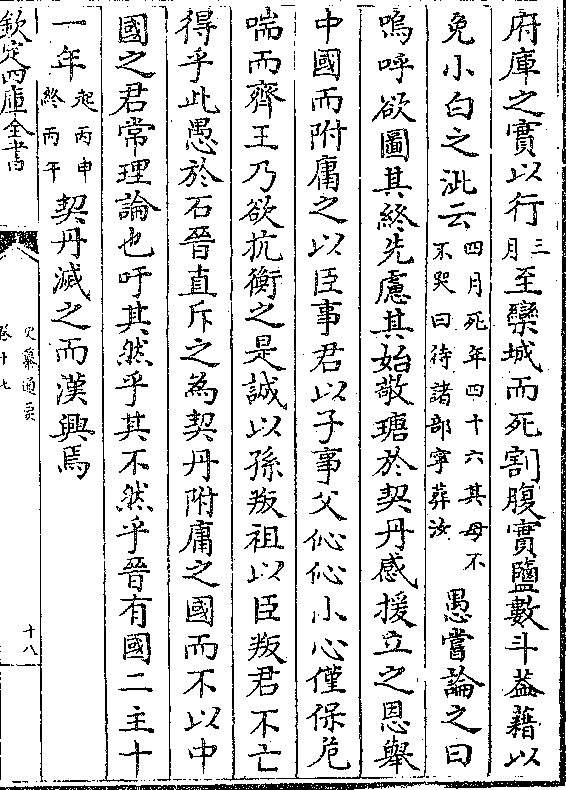 府庫之實以行三月至欒城而死割腹實鹽數斗葢藉以
免小白之沘云四月死年四十六其母不不哭曰待諸部寧葬汝愚嘗論之曰
嗚呼欲圖其終先慮其始敬瑭於契丹感援立之恩舉
中國而附庸之以臣事君以子事父伈伈小心僅保危
喘而齊王乃欲抗衡之是誠以孫叛祖以臣叛君不亡
得乎此愚於石晉直斥之為契丹附庸之國而不以中
國之君常理論也吁其然乎其不然乎晉有國二主十
一年起丙申終丙午契丹滅之而漢興焉
欽定四庫全書
史纂通要
卷十七
十八